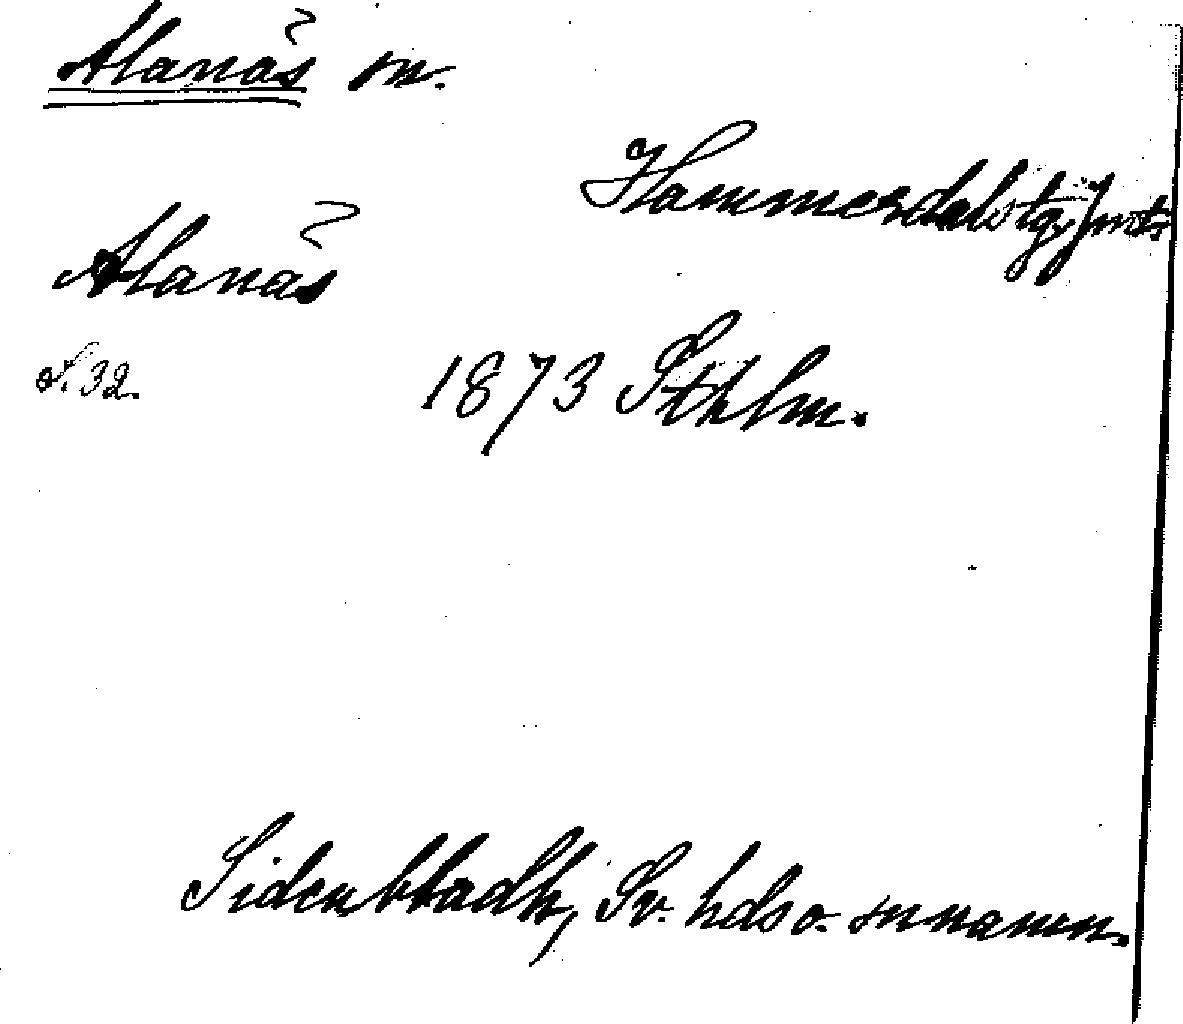 Alanäs sn.
Hammerdals tg, Jmtl.
Alanäs
s. 32.
1873 Sthlm.
Sidenbladh, Sv. hds o. snnamn.